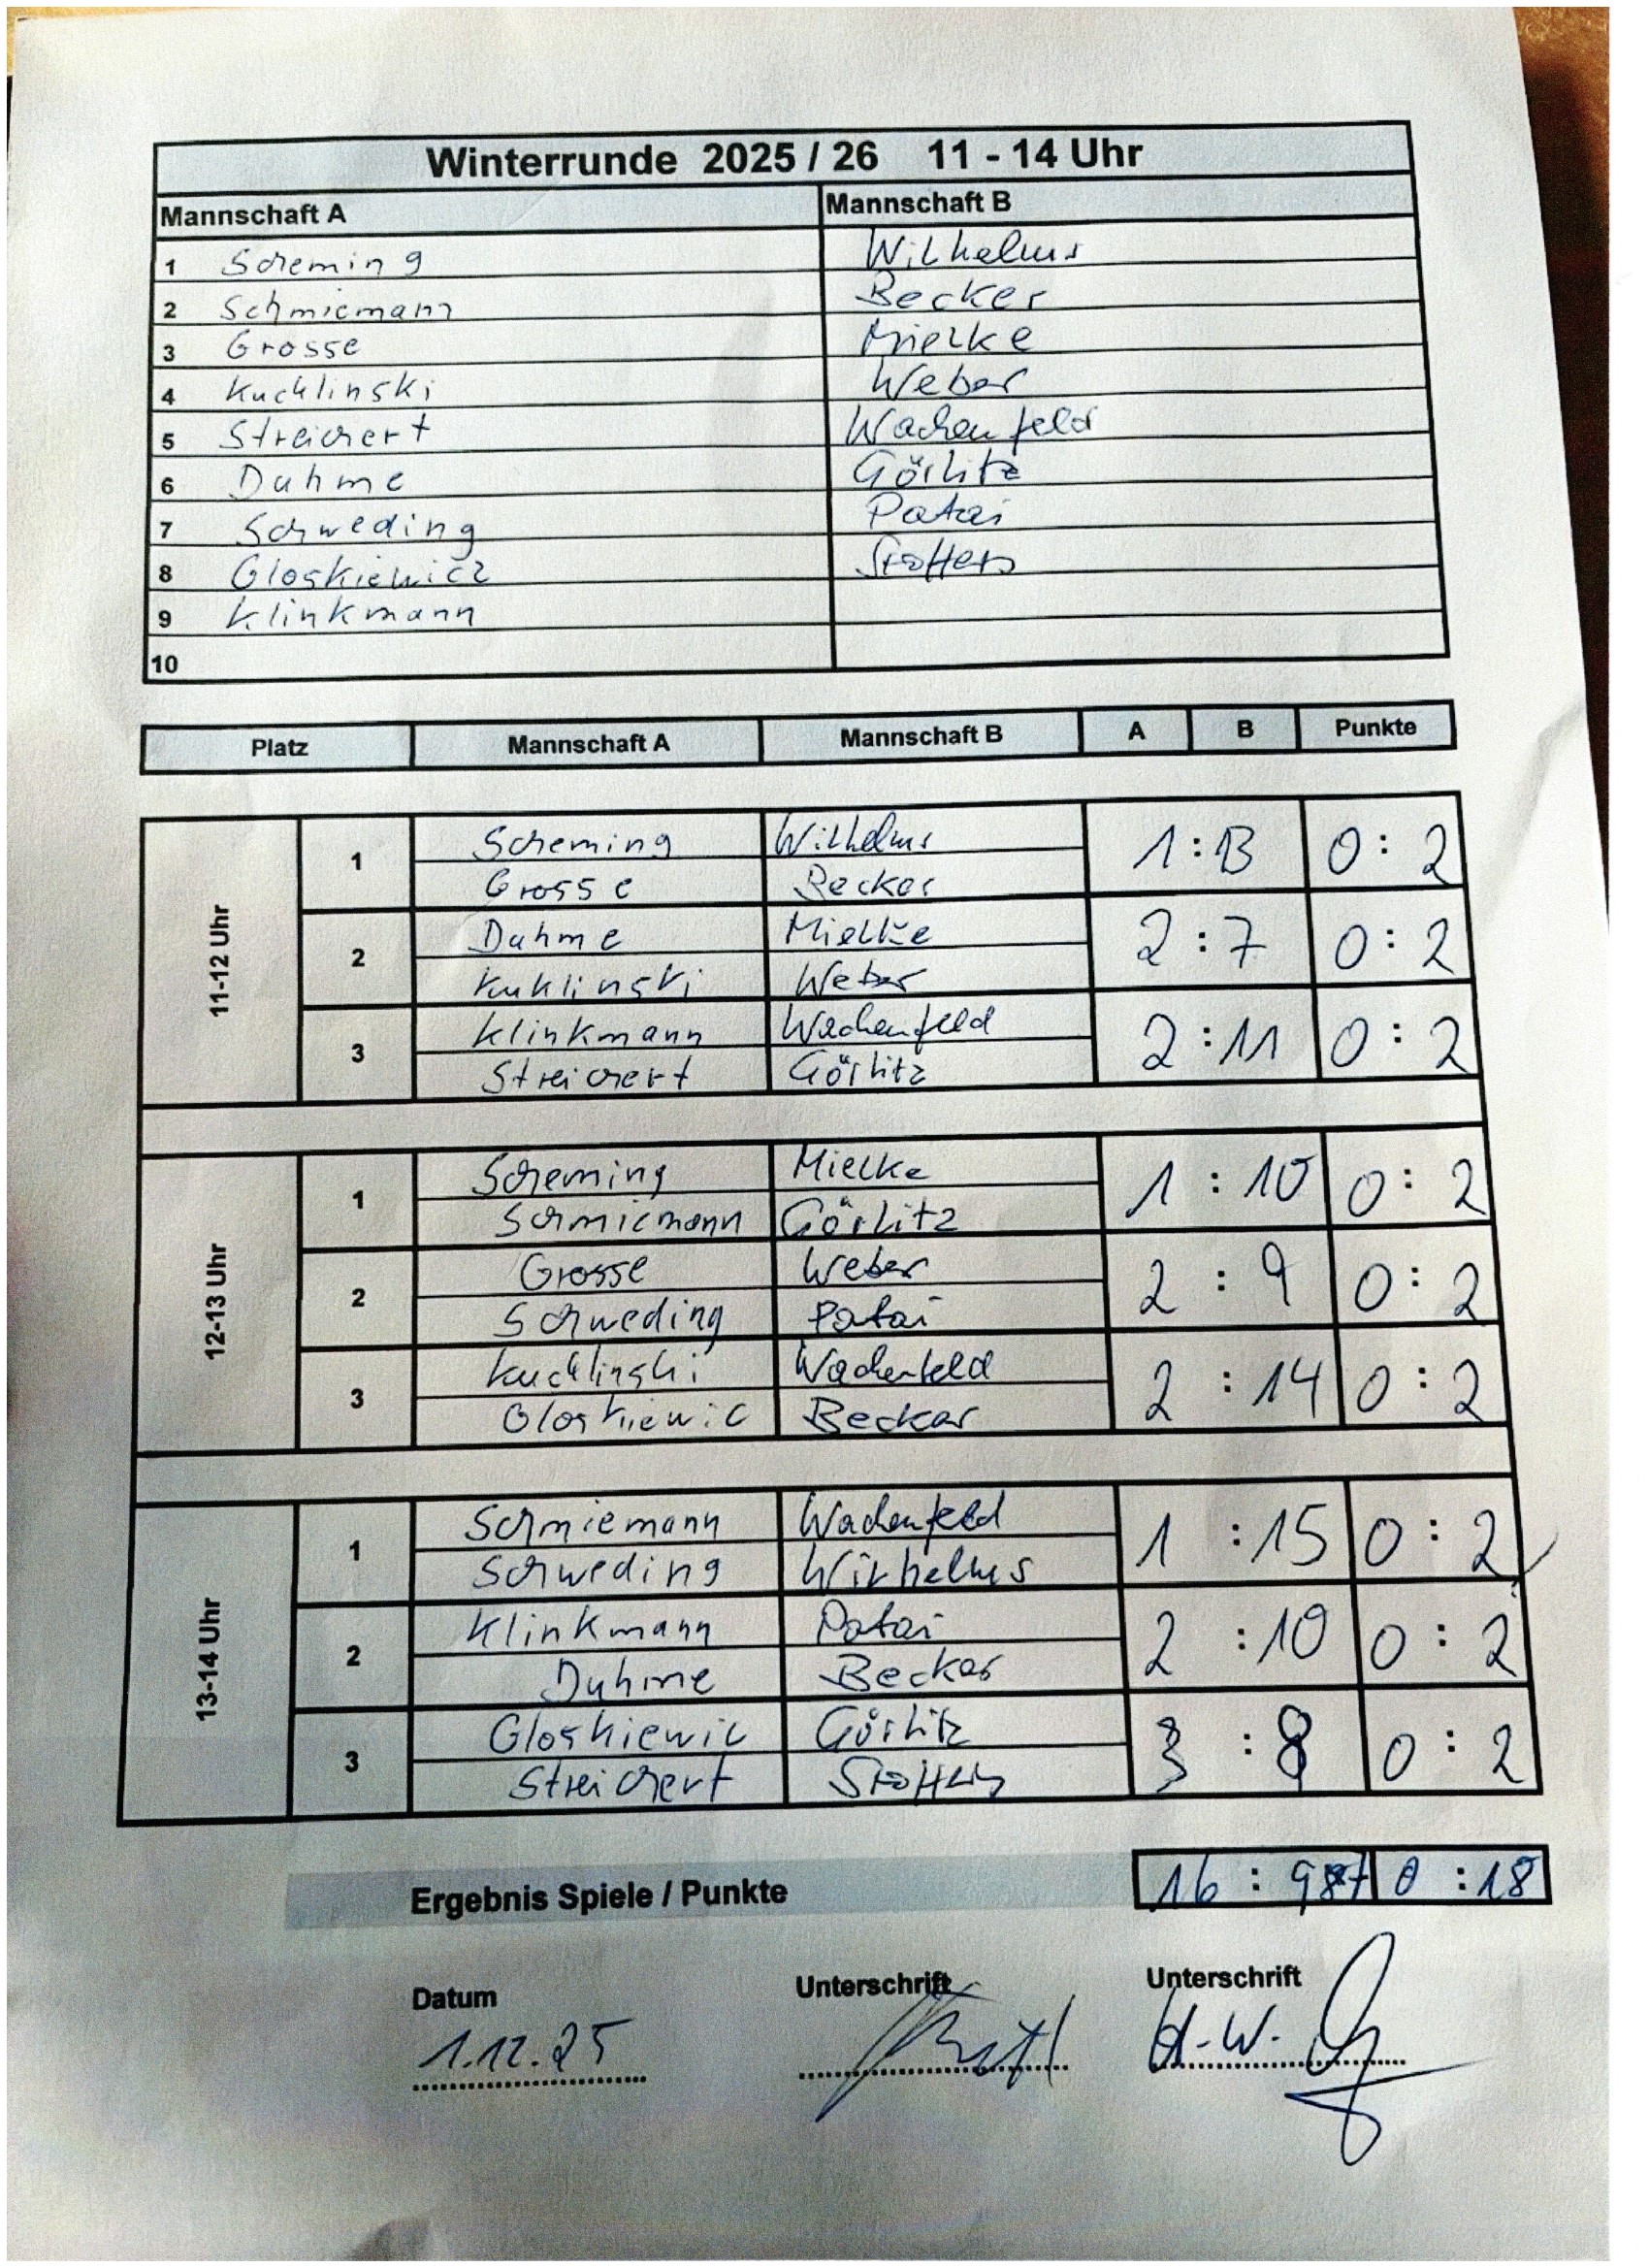 Winterrunde 2025 / 26 11 - 14 Uhr
Mannschaft A Mannschaft B
1 Scheming Wilhelms
2 Schmiemann Becker
3 Grosse Mielke
4 Kuchlinski Weber
5 Streichert Wachenfeld
6 Duhme Görlitz
7 Schweding Patai
8 Gloskiewicz Stoffers
9 Klinkmann
10
Platz Mannschaft A Mannschaft B A B Punkte
11-12 Uhr
1 Scheming Wilhelms 1 : 13 0 : 2
Grosse Becker
2 Duhme Mielke 2 : 7 0 : 2
Kuklinski Weber
3 Klinkmann Wachenfeld 2 : 11 0 : 2
Streichert Görlitz
12-13 Uhr
1 Scheming Mielke 1 : 10 0 : 2
Schmiemann Görlitz
2 Grosse Weber 2 : 9 0 : 2
Schweding Patai
3 Kuchlinski Wachenfeld 2 : 14 0 : 2
Gloskiewic Becker
13-14 Uhr
1 Schmiemann Wachenfeld 1 : 15 0 : 2
Schweding Wilhelms
2 Klinkmann Patai 2 : 10 0 : 2
Duhme Becker
3 Gloskiewic Görlitz 3 : 8 0 : 2
Streichert Stoffers
Ergebnis Spiele / Punkte 16 : 0 : 18
Datum Unterschrift Unterschrift
1.12.25 H.-W.